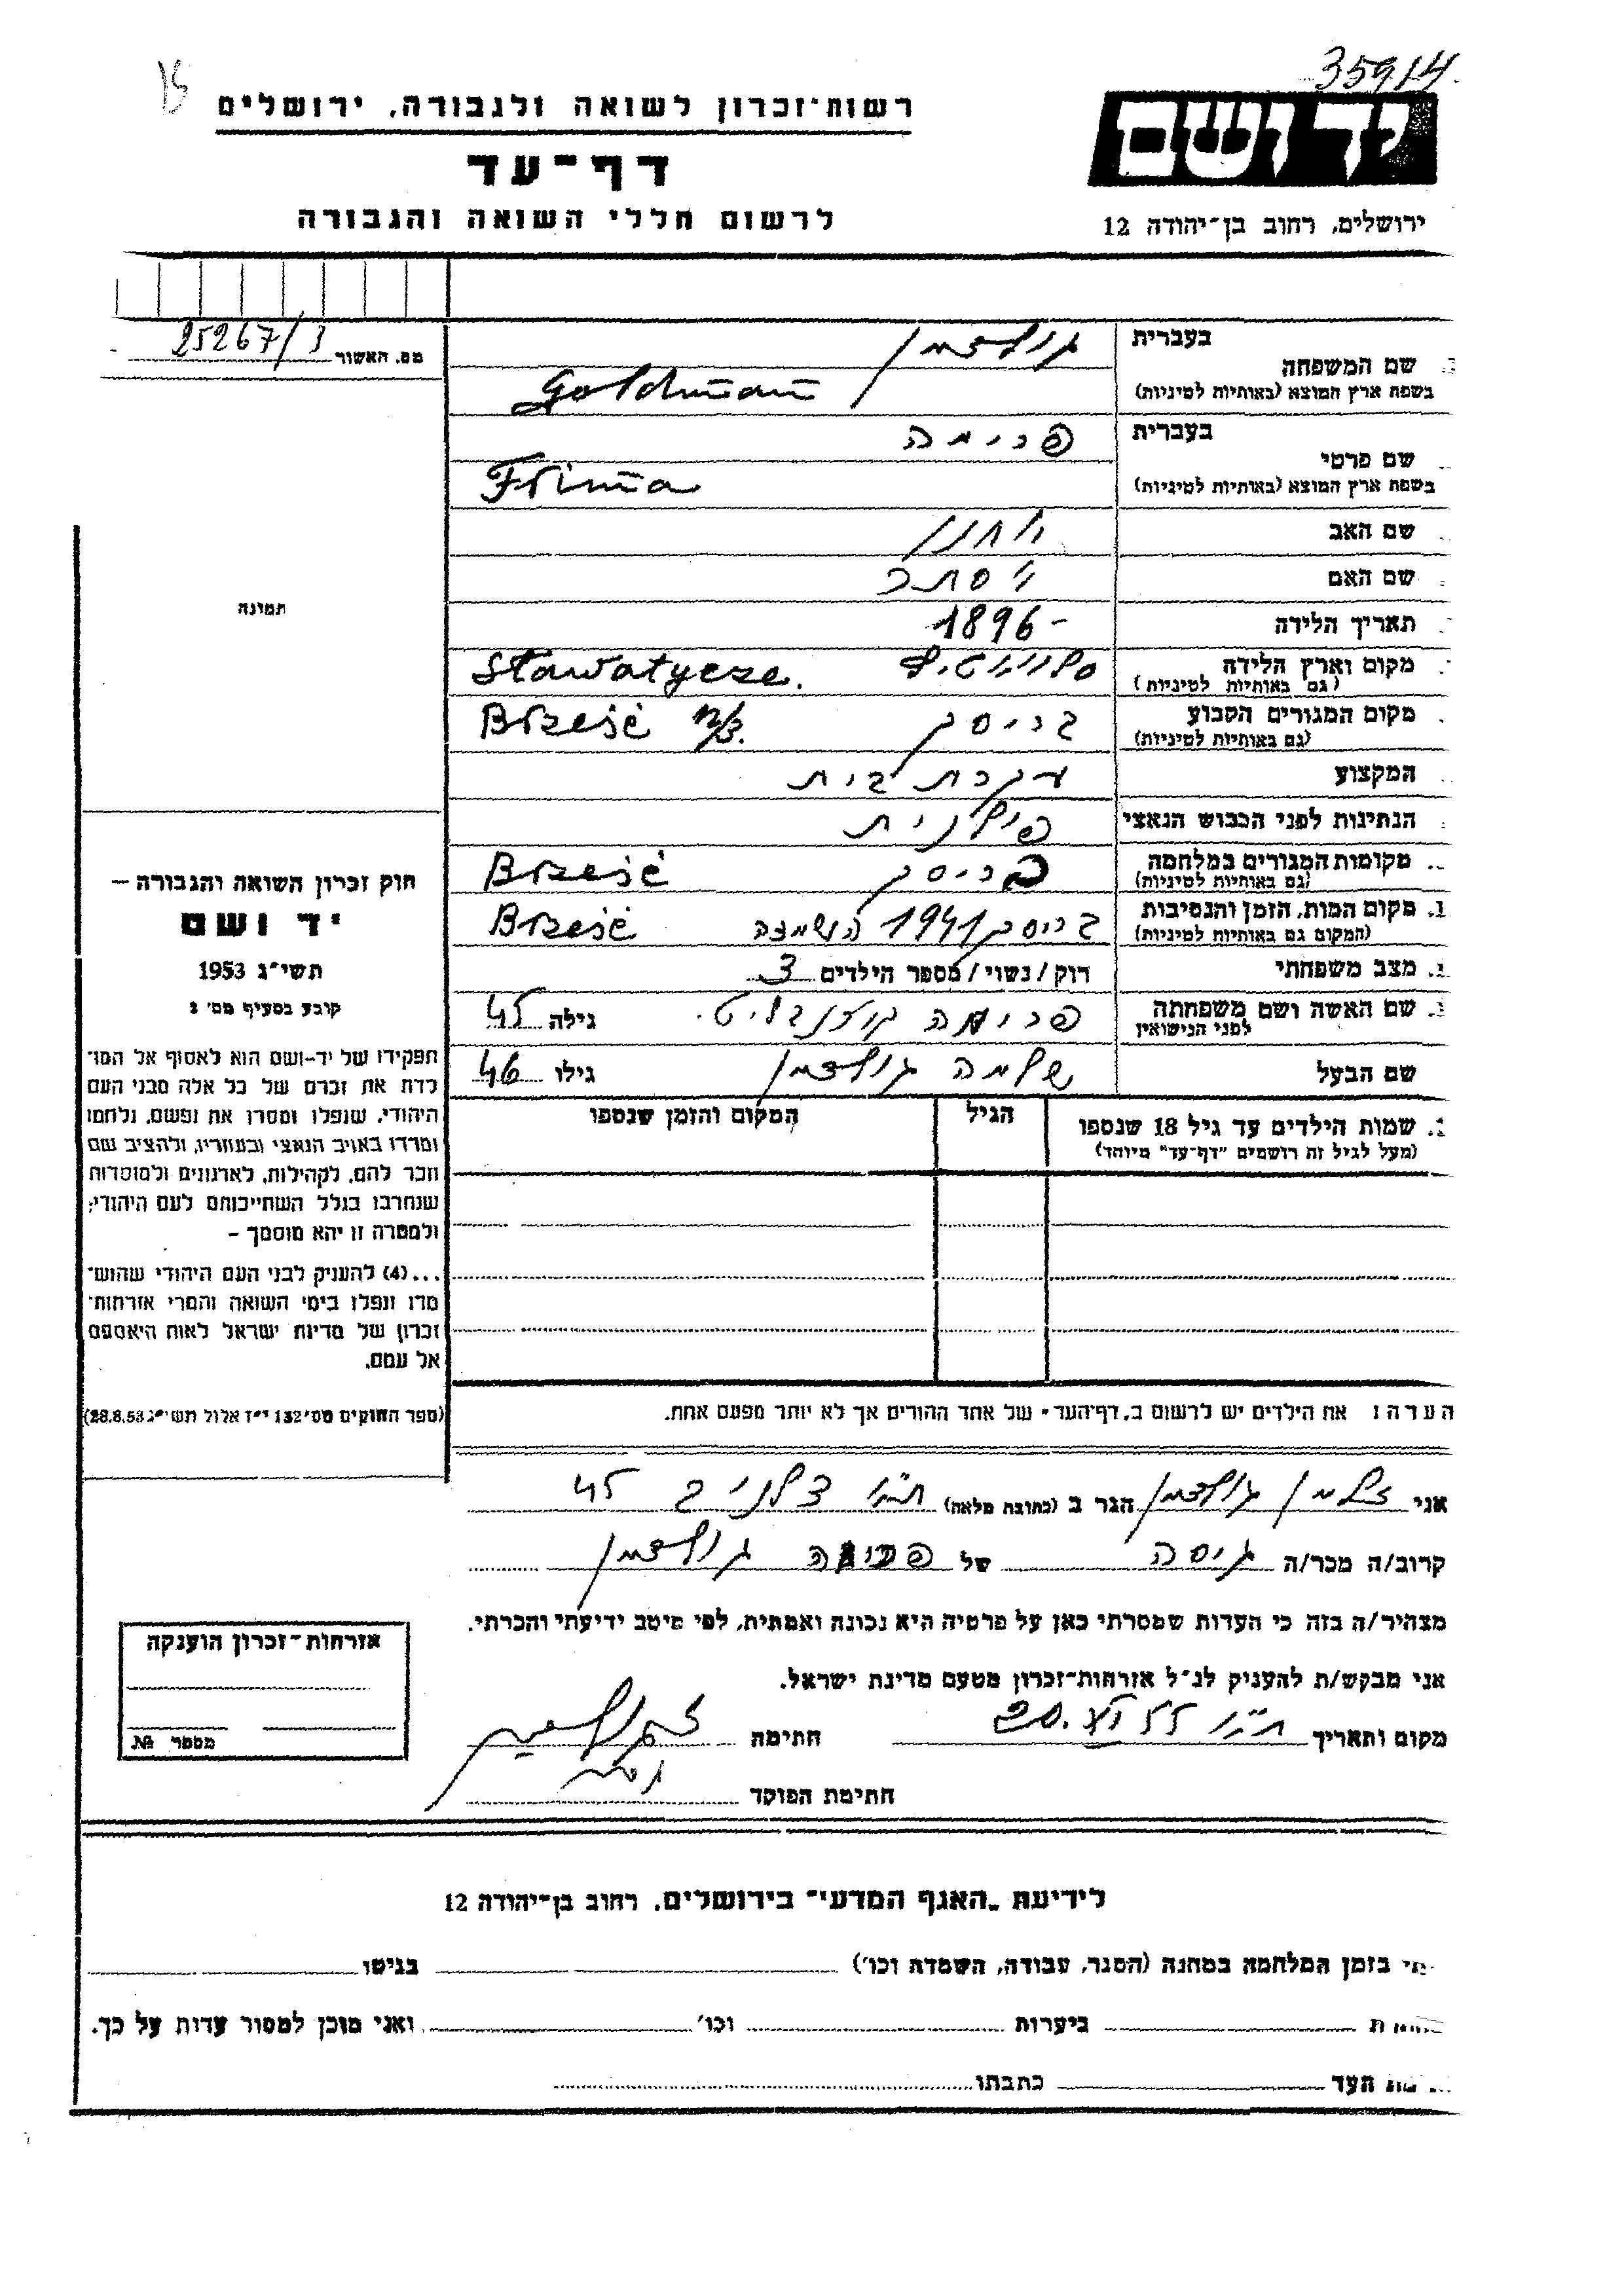 35914
רשות־זכרון לשואה ולגבורה, ירושלים
דף־עד
לרשום חללי השואה והגבורה
יד ושם
ירושלים, רחוב בן־יהודה 12
מס. האשור 25267/3
בעברית גולדמן
שם המשפחה
בשפת ארץ המוצא (באותיות לטיניות) Goldman
בעברית פרימה
שם פרטי
בשפת ארץ המוצא (באותיות לטיניות) Frima
שם האב
שם האם
תאריך הלידה 1896 -
מקום וארץ הלידה Sławatycze.
(גם באותיות לטיניות)
מקום המגורים הקבוע בריסק Brześć n/B.
(גם באותיות לטיניות)
המקצוע עקרת בית
הנתינות לפני הכבוש הנאצי פולנית
מקומות המגורים במלחמה בריסק Brześć
(גם באותיות לטיניות)
מקום המות, הזמן והנסיבות בריסק 1941 הושמדה Brześć
(המקום גם באותיות לטיניות)
מצב משפחתי רוק/נשוי/מספר הילדים 3
שם האשה ושם משפחתה פרימה גילה 45
לפני הנישואין
שם הבעל שלמה גולדמן גילו 46
שמות הילדים עד גיל 18 שנספו הגיל המקום והזמן שנספו
(מעל לגיל זה רושמים "דף־עד" מיוחד)
תמונה
חוק זכרון השואה והגבורה –
יד ושם
תשי"ג 1953
קובע בסעיף מס' 2
תפקידו של יד-ושם הוא לאסוף אל המו־
לדת את זכרם של כל אלה מבני העם
היהודי, שנפלו ומסרו את נפשם, נלחמו
ומרדו באויב הנאצי ובעוזריו, ולהציב שם
וזכר להם, לקהילות, לארגונים ולמוסדות
שנחרבו בגלל השתייכותם לעם היהודי;
ולמטרה זו יהא מוסמך –
...(4) להעניק לבני העם היהודי שהוש־
מדו ונפלו בימי השואה והמרי אזרחות־
זכרון של מדינת ישראל לאות היאספם
אל עמם.
(ספר החוקים מס' 132 י"ז אלול תשי"ג 28.8.53)
הערה: את הילדים יש לרשום ב„דף־העד" של אחד ההורים אך לא יותר מפעם אחת.
אני זלמן גולדמן הגר ב (כתובת מלאה) ת"א 45
קרוב/ה מכר/ה גיסה של פרימה גולדמן
מצהיר/ה בזה כי העדות שמסרתי כאן על פרטיה היא נכונה ואמתית, לפי מיטב ידיעתי והכרתי.
אני מבקש/ת להעניק לנ"ל אזרחות־זכרון מטעם מדינת ישראל.
מקום ותאריך ת"א 20.XI 55 חתימה
חתימת הפוקד
אזרחות־זכרון הוענקה
מספר №
לידיעת „האגף המדעי" בירושלים, רחוב בן־יהודה 12
תי בזמן המלחמה במחנה (הסגר, עבודה, השמדה וכו') בגיטו
ביערות וכו' ואני מוכן למסור עדות על כך.
העד כתבתו